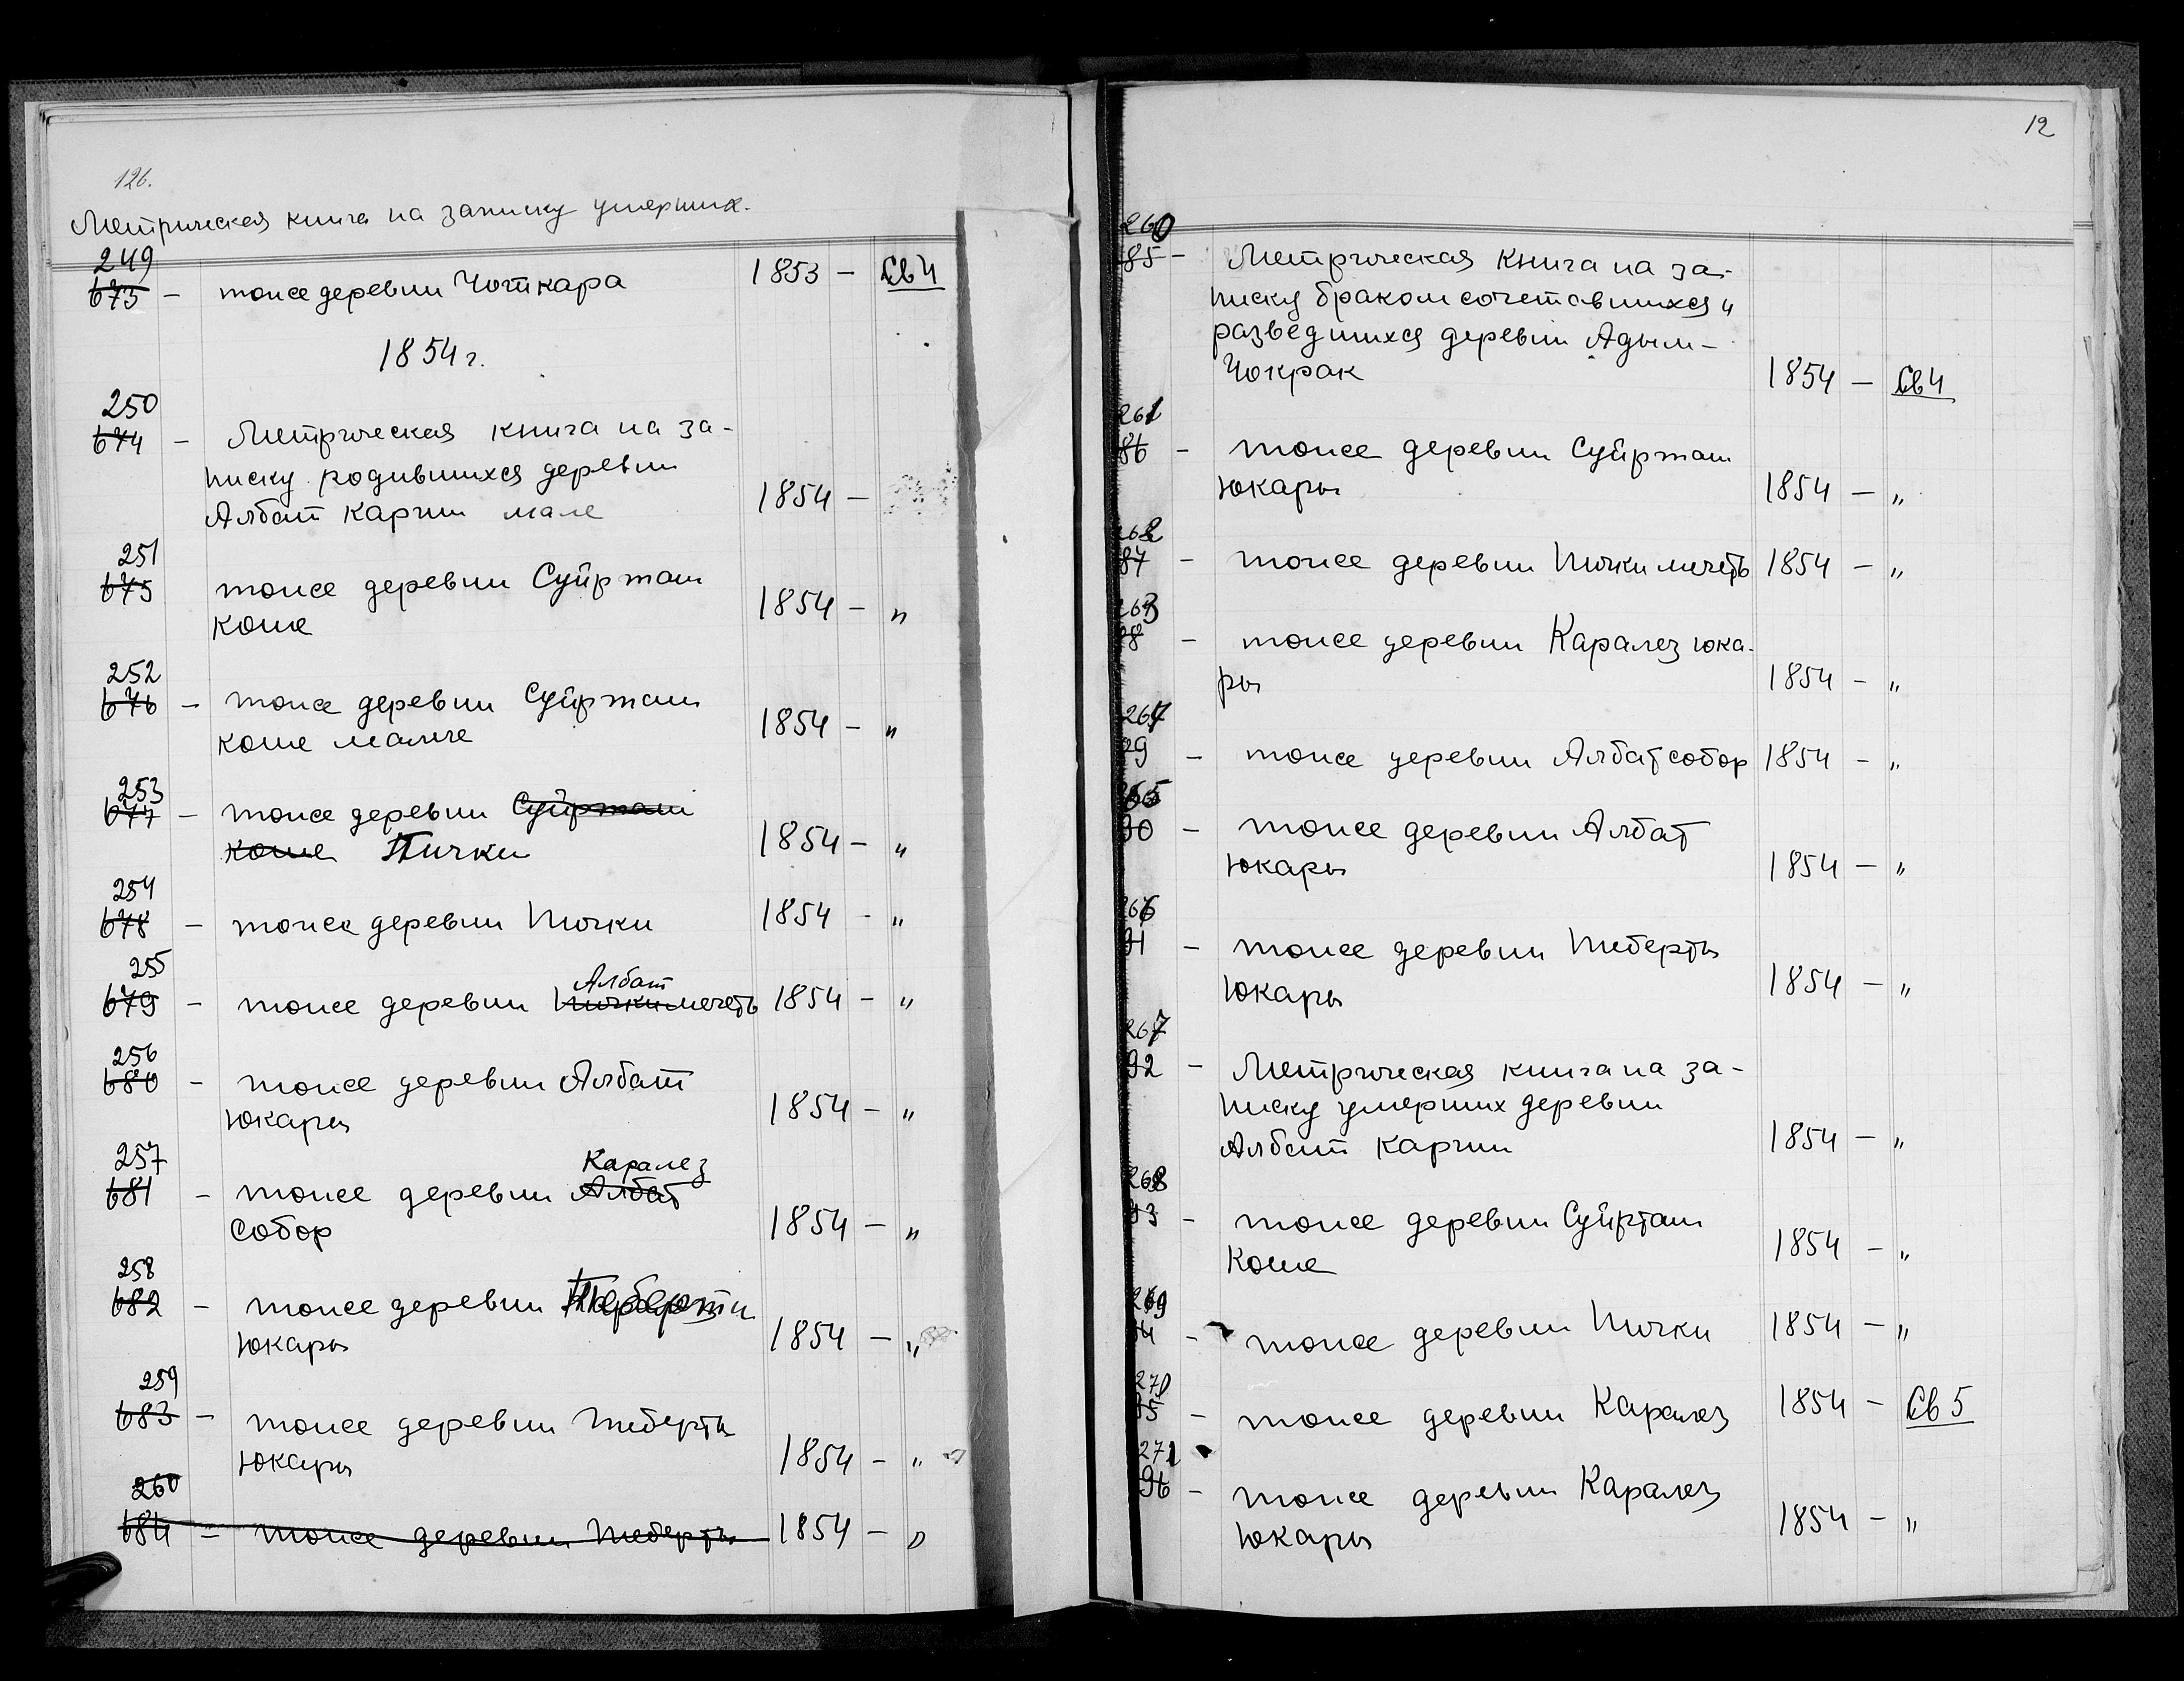 126.
Метрическая книга на записку умерших.
249
673 – тоже деревни Чоткара 1853 – Св 4
1854 г.
250
674 – Метрическая книга на за-
писку родившихся деревни
Албат Каргин мале 1854 –
251
675 тоже деревни Суйрташ
коше 1854 – "
252
676 – тоже деревни Суйрташ
коше маличе 1854 – "
253
677 – тоже деревни Суйрташ
коше Пички 1854 – "
254
678 – тоже деревни Пички 1854 – "
255
Албат
679 – тоже деревни Пички мечеть 1854 – "
256
680 – тоже деревни Албат
юкары 1854 – "
257
Каралез
681 – тоже деревни Албат
собор 1854 – "
258
682 – тоже деревни
юкары 1854 – "
259
683 – тоже деревни Теберты
юкары 1854 – "
260
684 – тоже деревни Теберты 1854 – "
12
260
85 – Метрическая книга на за-
писку браком сочетавшихся и
разведшихся деревни Адым-
Чокрак 1854 – Св 4
261
86 – тоже деревни Суйрташ
юкары 1854 – "
262
87 – тоже деревни Пички мечеть 1854 – "
263
88 – тоже деревни Каралез юка-
ры 1854 – "
264
89 – тоже деревни Албат собор 1854 – "
265
90 – тоже деревни Албат
юкары 1854 – "
266
91 – тоже деревни Теберты
юкары 1854 – "
267
92 – Метрическая книга на за-
писку умерших деревни
Албат Каргин 1854 – "
268
93 – тоже деревни Суйрташ
коше 1854 – "
269
94 – тоже деревни Пички 1854 – "
270
95 – тоже деревни Каралез 1854 – Св 5
271
96 – тоже деревни Каралез
юкары 1854 – "